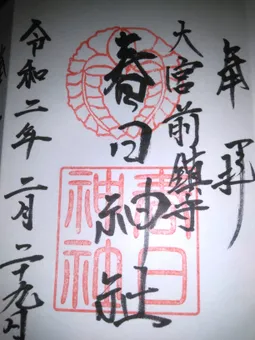 奉拝
大宮前鎮守
春日神社
令和二年二月二十九日
春日神社